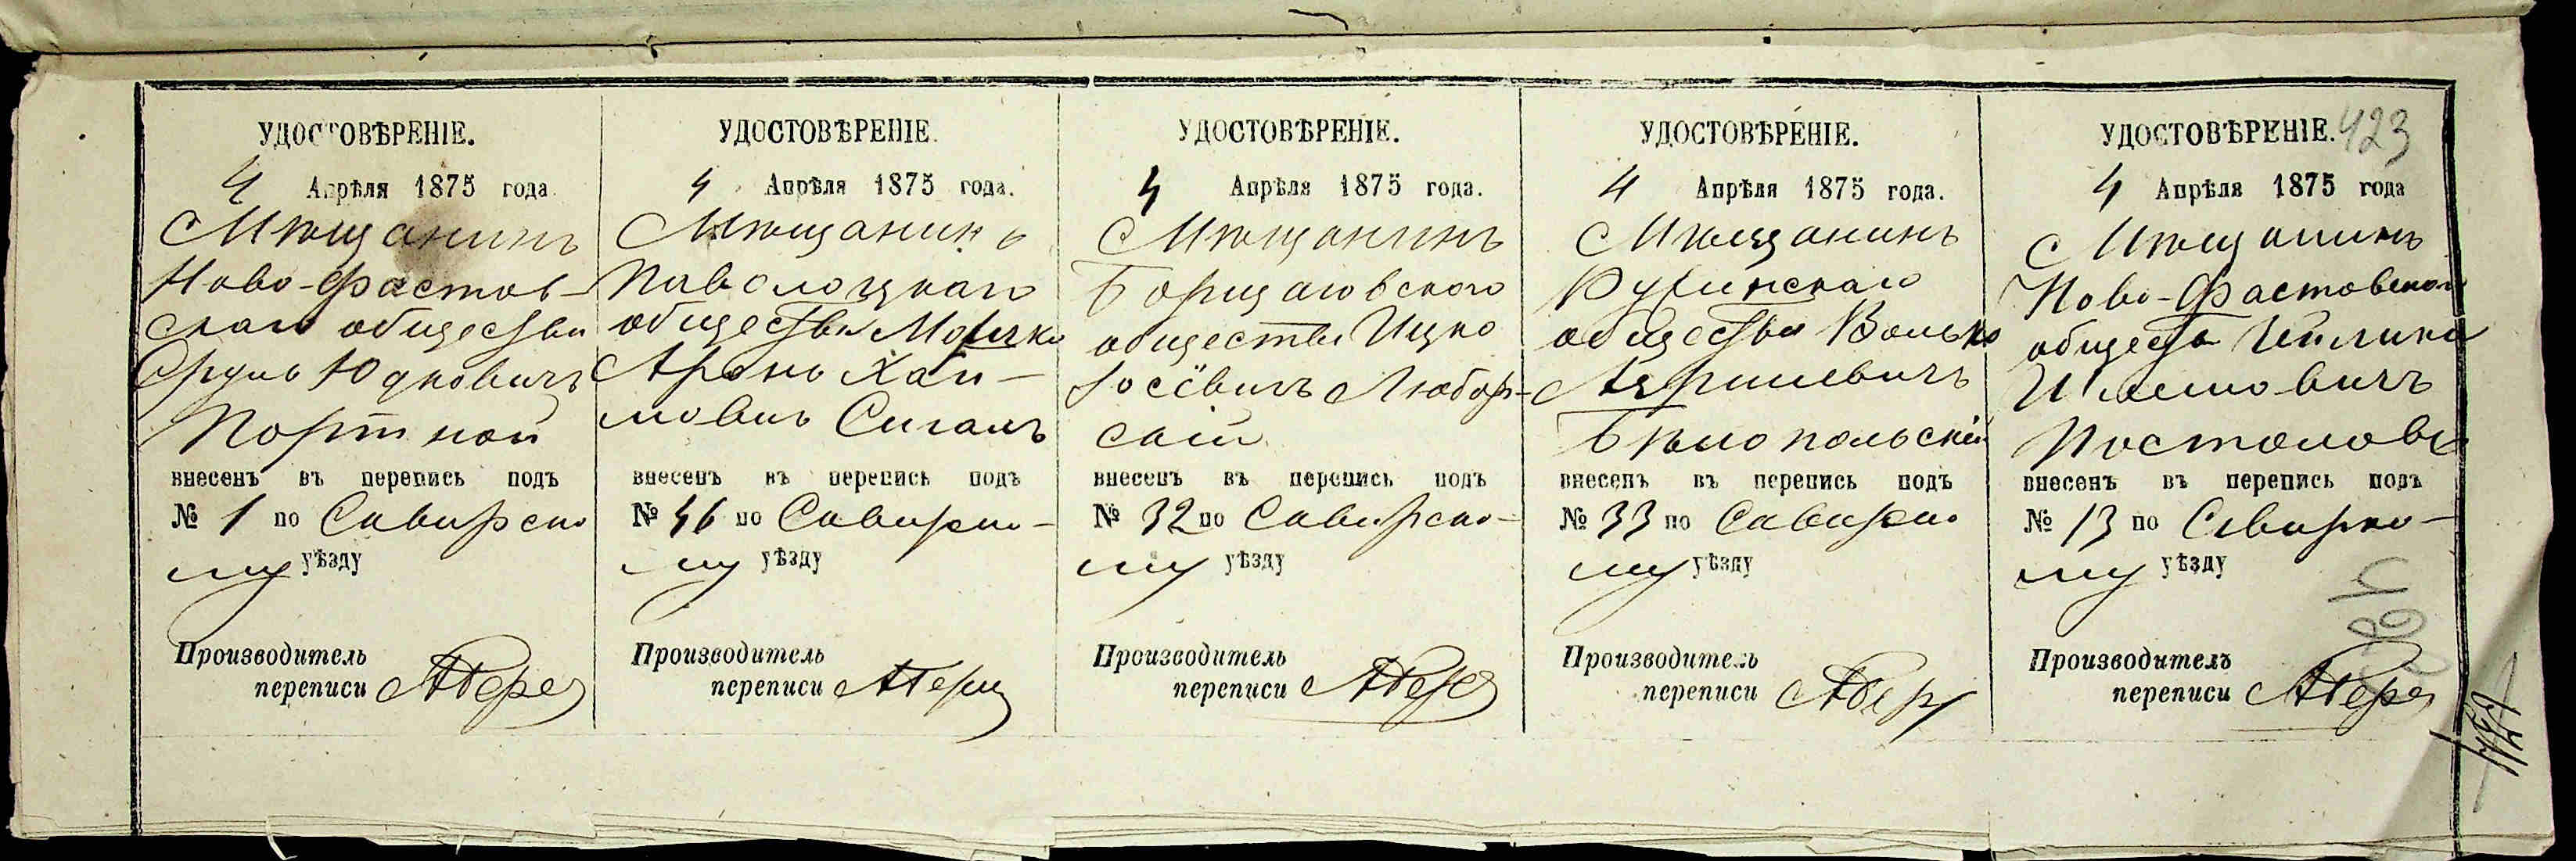 УДОСТОВѢРЕНІЕ.
4 Апрѣля 1875 года
Мѣщанинъ
Ново-Фастов-
скаго общества
Сруль Юдковичъ
Портной
внесенъ въ перепись подъ
№ 1 по Сквирско
му уѣзду
Производитель
переписи
УДОСТОВѢРЕНІЕ.
4 Апрѣля 1875 года.
Мѣщанинъ
Паволоцкаго
общества Мошко
Аронъ Хаи-
мовичъ Сигалъ
внесенъ въ перепись подъ
№ 46 по Сквирско-
му уѣзду
Производитель
переписи
УДОСТОВѢРЕНІЕ.
4 Апрѣля 1875 года.
Мѣщанинъ
Борщаговского
общества Ицко
Іосевичъ Любар-
скій
внесенъ въ перепись подъ
№ 32 по Сквирско-
му уѣзду
Производитель
переписи
УДОСТОВѢРЕНІЕ.
4 Апрѣля 1875 года.
Мѣщанинъ
Ружинскаго
общества Волько
Лейзеровичъ
Бѣлопольскій
внесенъ въ перепись подъ
№ 33 по Сквирско
му уѣзду
Производитель
переписи
УДОСТОВѢРЕНІЕ. 423
4 Апрѣля 1875 года
Мѣщанинъ
Ново-Фастовского
общества
Постоловъ
внесенъ въ перепись подъ
№ 13 по Сквирско-
му уѣзду
Производитель
переписи